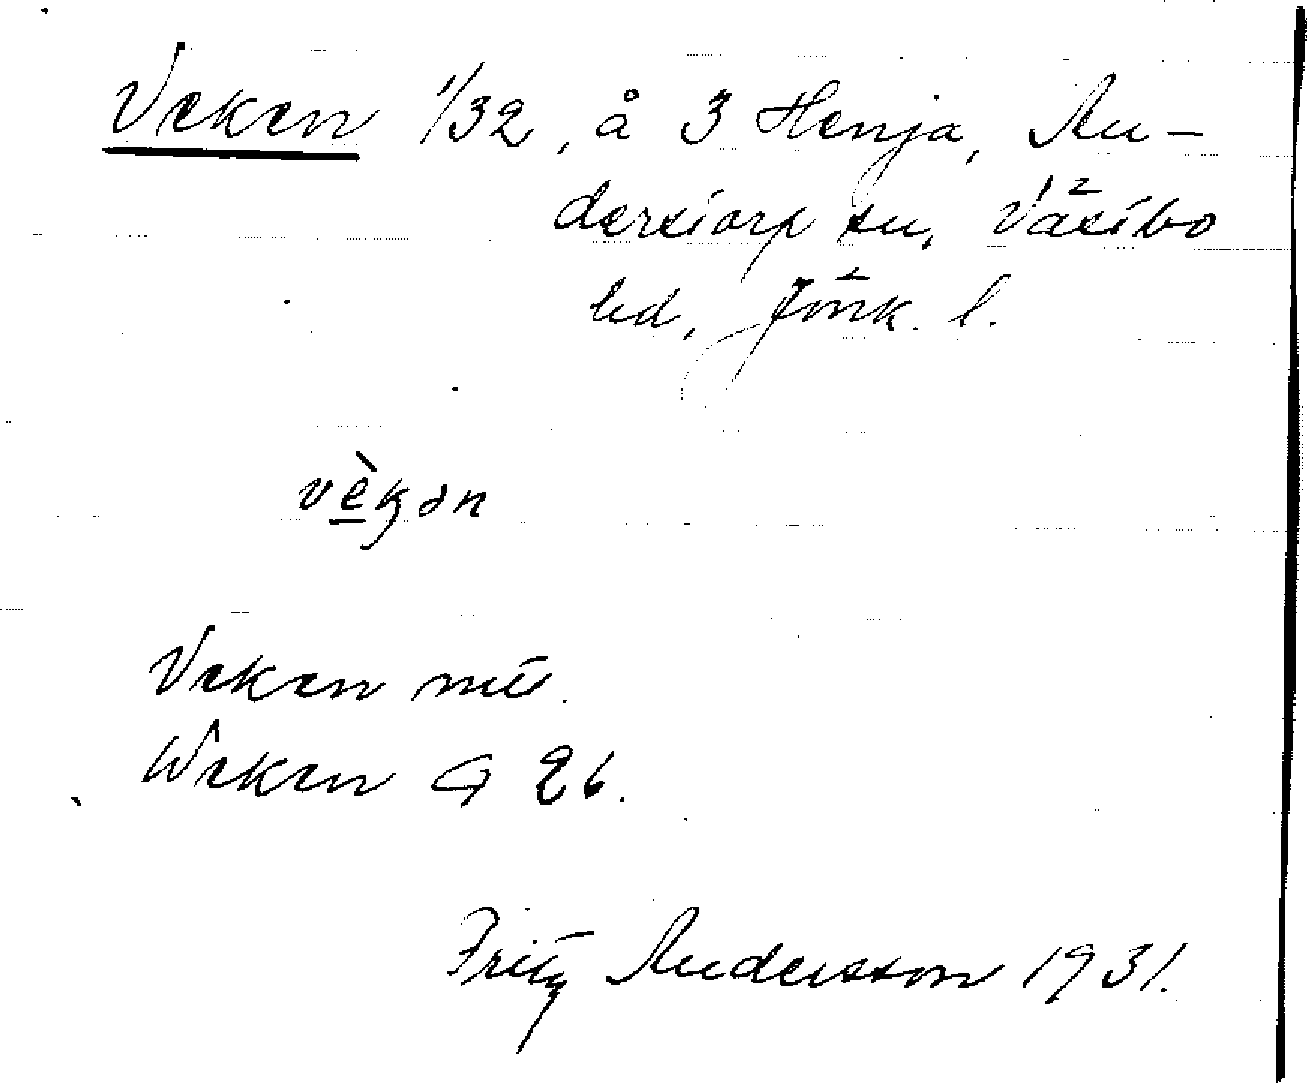 Veken 1/32, å 3 Henja, An-
derstorp sn, Västbo
hd, Jönk. l.
vèkən
Veken mtl.
Weken G 26.
Fritz Andersson 1931.